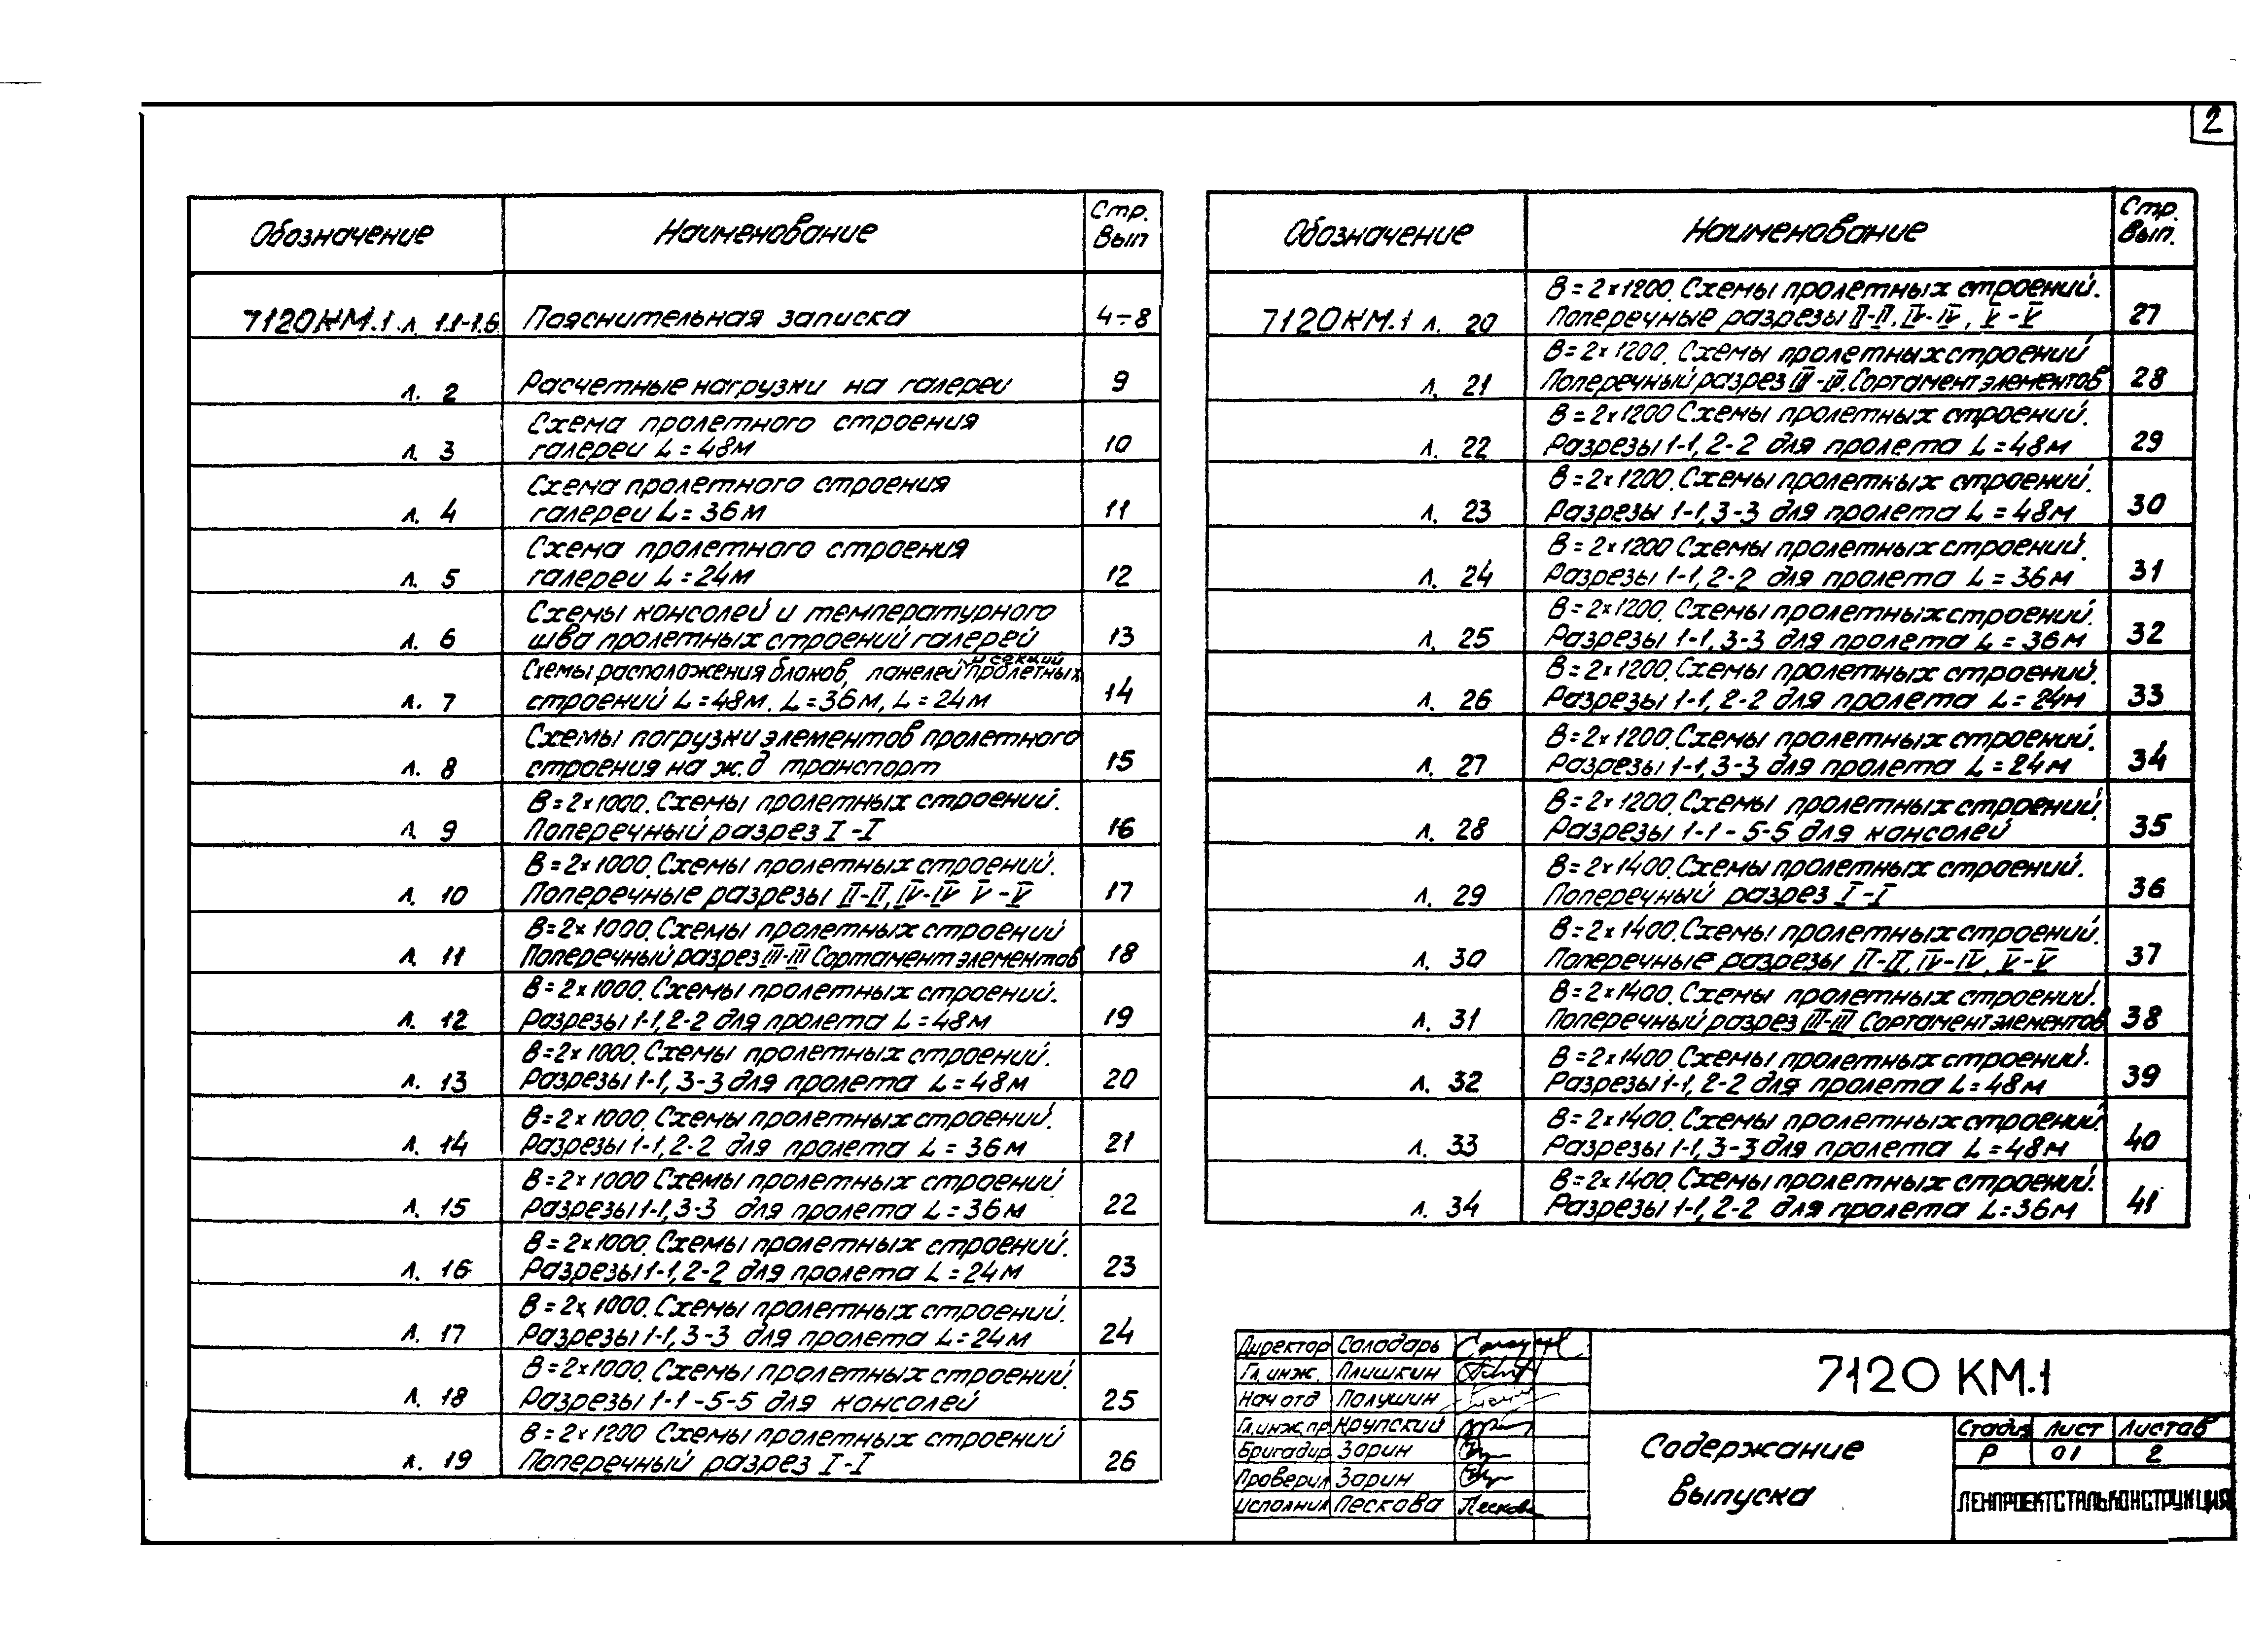 2
Обозначение Наименование Стр. Вып
7120КМ.1 л. 1.1-1.5 Пояснительная записка 4÷8
л. 2 Расчетные нагрузки на галереи 9
л. 3 Схема пролетного строения
галереи L=48м 10
л. 4 Схема пролетного строения
галереи L=36м 11
л. 5 Схема пролетного строения
галереи L=24м 12
л. 6 Схемы консолей и температурного
шва пролетных строений галерей 13
л. 7 Схемы расположения блоков, панелей и секций пролетных
строений L=48м. L=36м, L=24м 14
л. 8 Схемы погрузки элементов пролетного
строения на ж.д транспорт 15
л. 9 В=2х1000. Схемы пролетных строений.
Поперечный разрез I-I 16
л. 10 В=2х1000. Схемы пролетных строений.
Поперечные разрезы II-II, IV-IV V-V 17
л. 11 В=2х1000. Схемы пролетных строений
Поперечный разрез III-III Сортамент элементов 18
л. 12 В=2х1000. Схемы пролетных строений.
Разрезы 1-1, 2-2 для пролета L=48м 19
л. 13 В=2х1000. Схемы пролетных строений.
Разрезы 1-1, 3-3 для пролета L=48м 20
л. 14 В=2х1000. Схемы пролетных строений.
Разрезы 1-1, 2-2 для пролета L=36м 21
л. 15 В=2х1000 Схемы пролетных строений
Разрезы 1-1, 3-3 для пролета L=36м 22
л. 16 В=2х1000. Схемы пролетных строений.
Разрезы 1-1, 2-2 для пролета L=24м 23
л. 17 В=2х1000. Схемы пролетных строений.
Разрезы 1-1, 3-3 для пролета L=24м 24
л. 18 В=2х1000. Схемы пролетных строений.
Разрезы 1-1-5-5 для консолей 25
л. 19 В=2х1200 Схемы пролетных строений
Поперечный разрез I-I 26
Обозначение Наименование Стр. Вып.
7120КМ.1 л. 20 В=2х1200. Схемы пролетных строений.
Поперечные разрезы II-II, IV-IV, V-V 27
л. 21 В=2х1200. Схемы пролетных строений
Поперечный разрез III-III. Сортамент элементов 28
л. 22 В=2х1200 Схемы пролетных строений.
Разрезы 1-1, 2-2 для пролета L=48м 29
л. 23 В=2х1200. Схемы пролетных строений.
Разрезы 1-1, 3-3 для пролета L=48м 30
л. 24 В=2х1200 Схемы пролетных строений.
Разрезы 1-1, 2-2 для пролета L=36м 31
л. 25 В=2х1200. Схемы пролетных строений.
Разрезы 1-1, 3-3 для пролета L=36м 32
л. 26 В=2х1200. Схемы пролетных строений.
Разрезы 1-1, 2-2 для пролета L=24м 33
л. 27 В=2х1200. Схемы пролетных строений.
Разрезы 1-1, 3-3 для пролета L=24м 34
л. 28 В=2х1200. Схемы пролетных строений.
Разрезы 1-1-5-5 для консолей 35
л. 29 В=2х1400. Схемы пролетных строений.
Поперечный разрез I-I 36
л. 30 В=2х1400. Схемы пролетных строений.
Поперечные разрезы II-II, IV-IV, V-V 37
л. 31 В=2х1400. Схемы пролетных строений.
Поперечный разрез III-III Сортамент элементов 38
л. 32 В=2х1400. Схемы пролетных строений.
Разрезы 1-1, 2-2 для пролета L=48м 39
л. 33 В=2х1400. Схемы пролетных строений.
Разрезы 1-1, 3-3 для пролета L=48м 40
л. 34 В=2х1400. Схемы пролетных строений.
Разрезы 1-1, 2-2 для пролета L=36м 41
Директор Солодарь
Гл.инж. Плишкин
Нач отд Полушин
Гл.инж.пр Крупский
Бригадир Зарин
Проверил Зарин
Исполнил Пескова Пескова
7120 КМ.1
Содержание
выпуска
Стадия Лист Листов
Р 01 2
ЛЕНПРОЕКТСТАЛЬКОНСТРУКЦИЯ